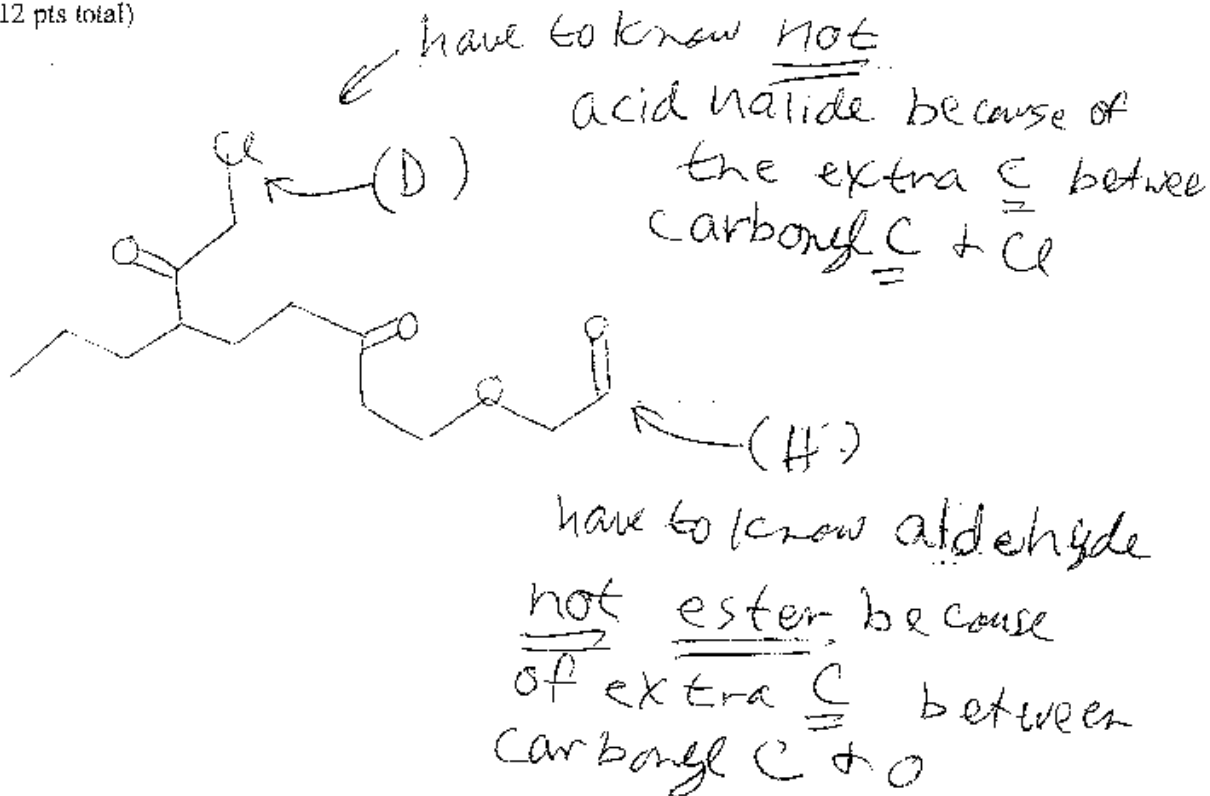 12 pts total)
have to know not
acid halide because of
the extra C betwee
carbonyl C + Cl
Cl
(D)
O
O
O
O
(H)
have to know aldehyde
not ester because
of extra C between
carbonyl C + O